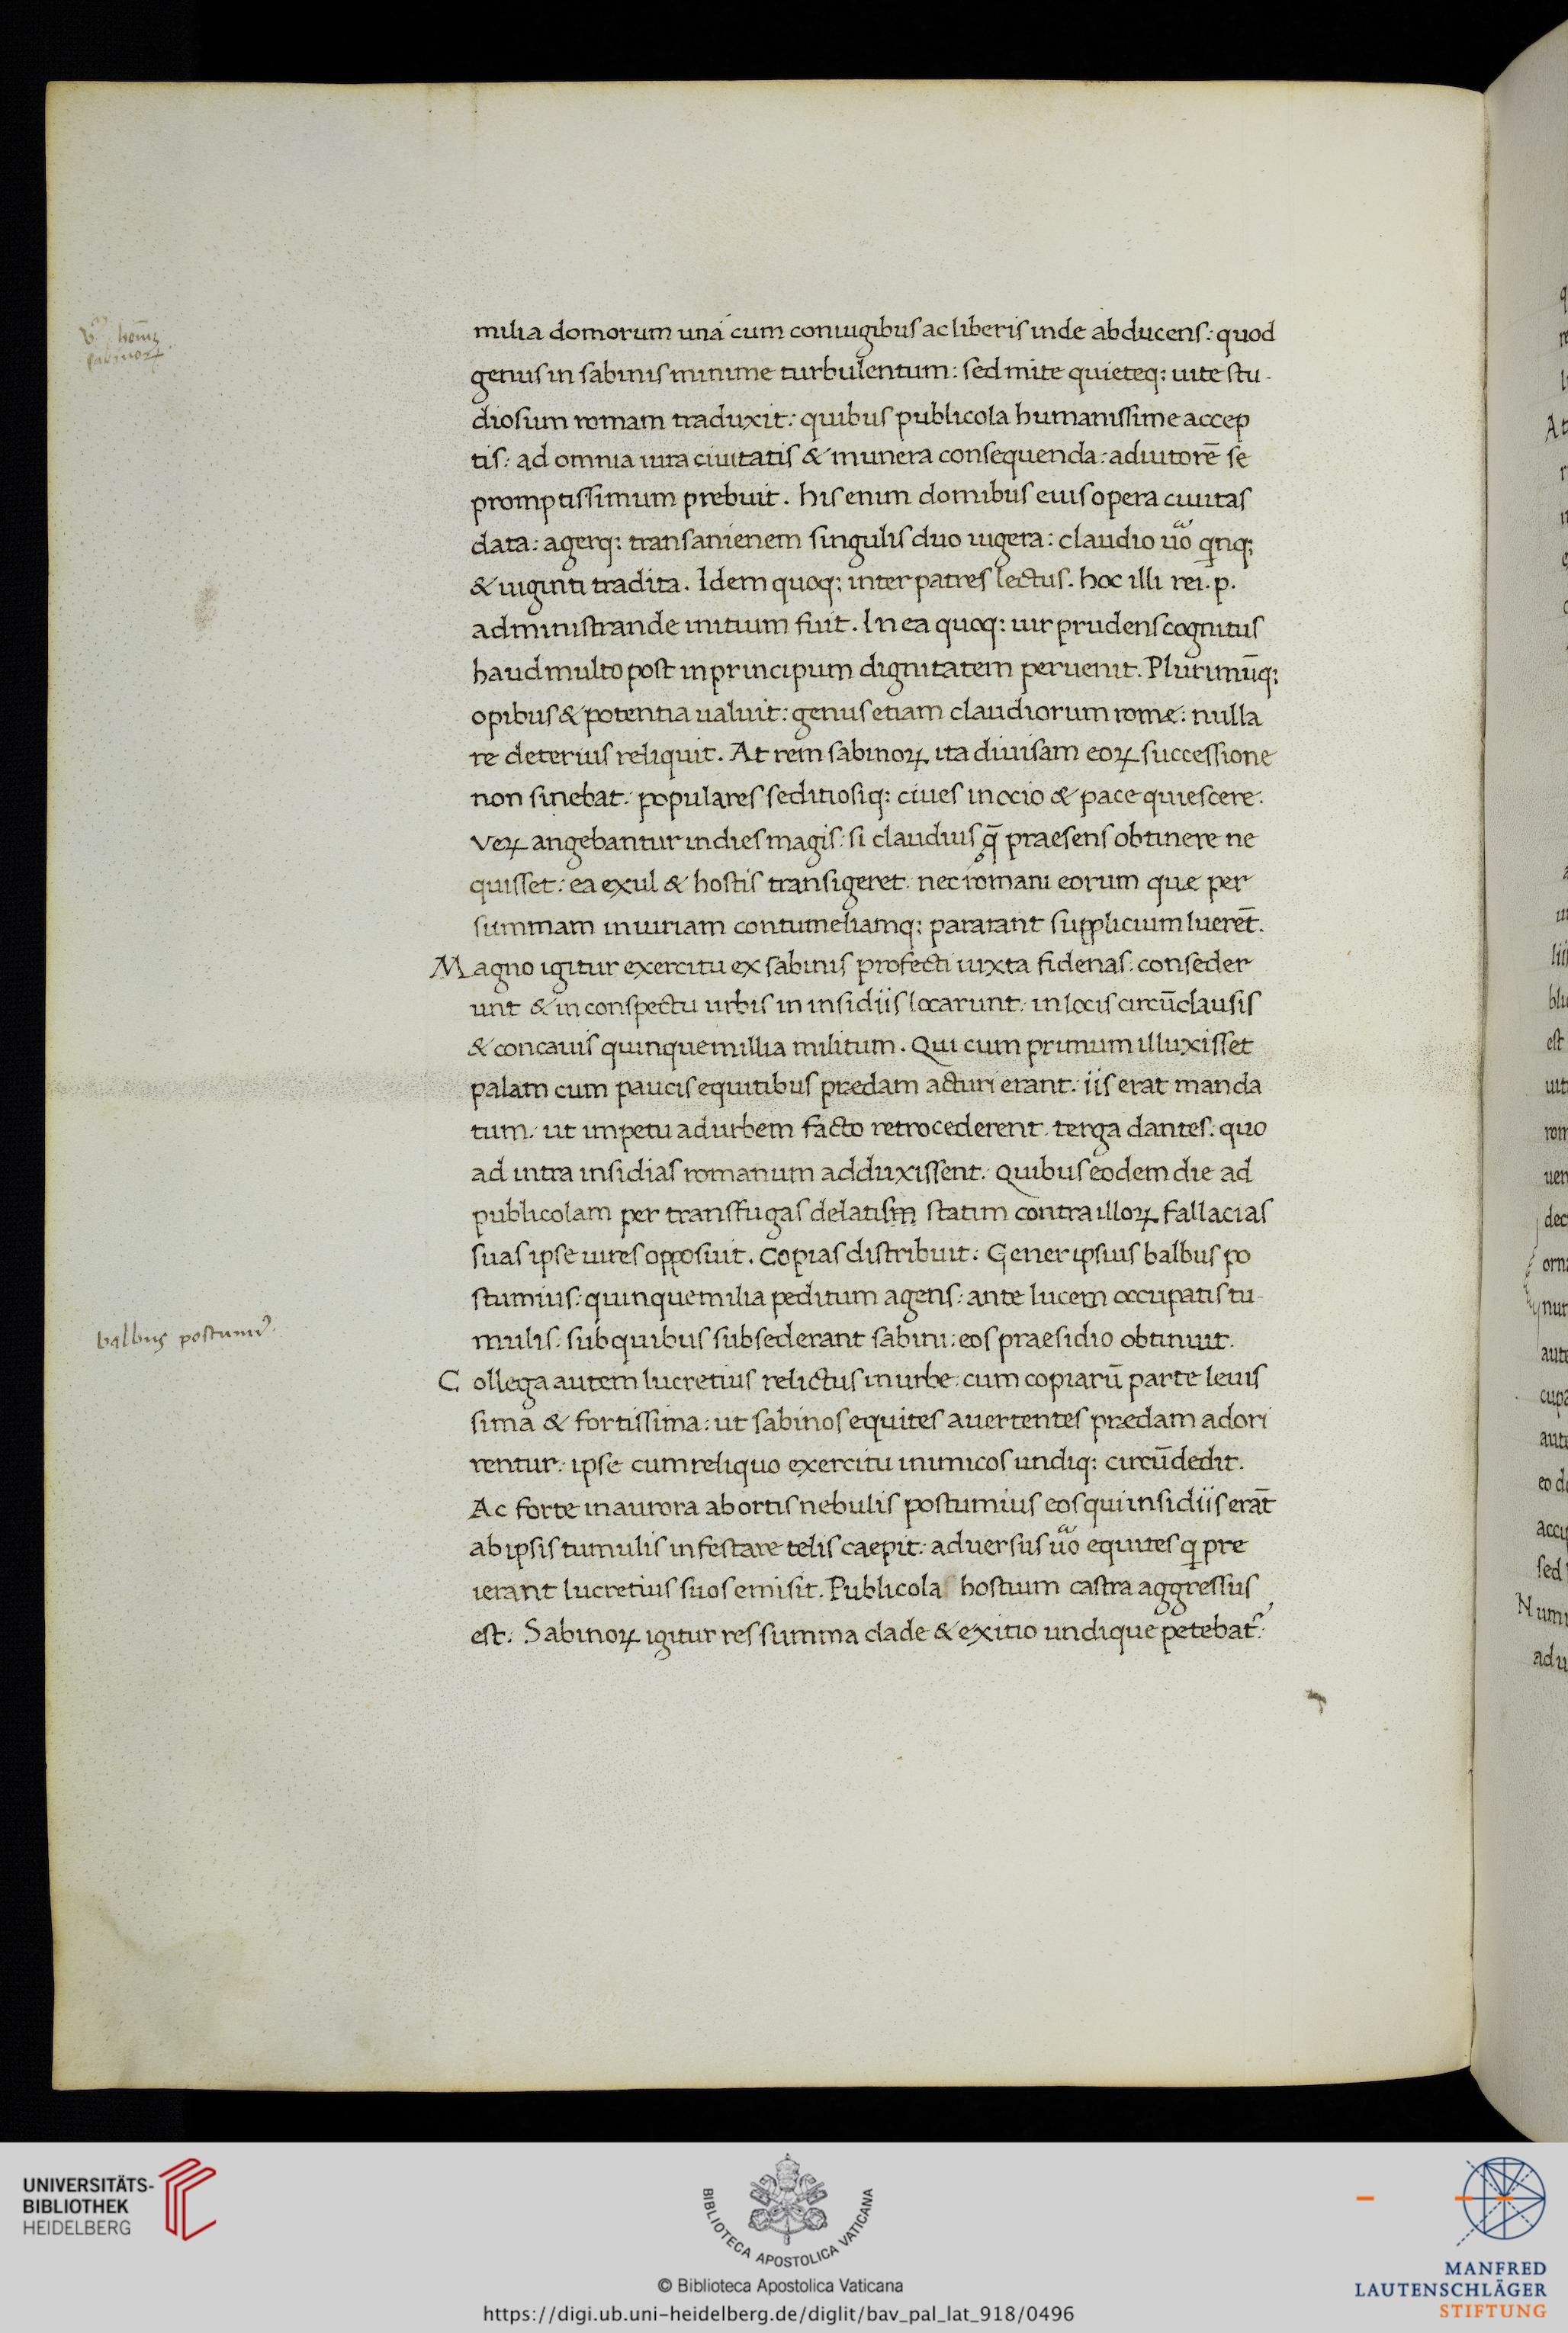 milia domorum una cum coniugibus ac liberis inde abducens: quod
genus in sabinis minime turbulentum: sed mite quieteq; uite stu-
diosum romam traduxit: quibus publicola humanissime accep
tis: ad omnia iura ciuitatis & munera consequenda: adiutorē se
promptissimum prebuit. his enim domibus eius opera ciuitas
data: agerq; transanienem singulis duo iugera: claudio uͦo qnq;
& uiginti tradita. Idem quoq; inter patres lectus. hoc illi rei. p.
administrande initium fuit. In ea quoq; uir prudens cognitus
haud multo post in principum dignitatem peruenit. Plurimūq;
opibus & potentia ualuit: genus etiam claudiorum romæ: nulla
re deterius reliquit. At rem sabinoꝝ ita diuisam eoꝝ successione
non sinebat: populares seditiosiq; ciues in ocio & pace quiescere.
Veꝝ angebantur in dies magis: si claudius q̄ praesens obtinere ne
quisset: ea exul & hostis transigeret. nec romani eorum quæ per
summam iniuriam contumeliamq; pararant supplicium luerēt.
Magno igitur exercitu ex sabinis profecti iuxta fidenas: conseder
unt & in conspectu urbis in insidiis locarunt: in locis circūclausis
& concauis quinque millia militum. Qui cum primum illuxisset
palam cum paucis equitibus prædam acturi erant: iis erat manda
tum: ut impetu ad urbem facto retrocederent: terga dantes: quo
ad intra insidias romanum adduxissent. Quibus eodem die ad
publicolam per transfugas delatis statim contra illoꝝ fallacias
suas ipse uires opposuit. Copias distribuit: Gener ipsius balbus po
stumius: quinque milia peditum agens: ante lucem occupatis tu-
mulis: sub quibus subsederant sabini: eos praesidio obtinuit.
Collega autem lucretius relictus in urbe: cum copiarū parte leuis
sima & fortissima: ut sabinos equites auertentes prædam adori
rentur: ipse cum reliquo exercitu inimicos undiq; circūdedit.
Ac forte in aurora abortis nebulis postumius eos qui insidiis erāt
ab ipsis tumulis infestare telis caepit: aduersus uͦo equites q pre
ierant lucretius suos emisit. Publicola hostium castra aggressus
est: Sabinoꝝ igitur res summa clade & exitio undique petebat᷑:
sabinoꝝ.
balbus postumi᷒.
UNIVERSITÄTS-
BIBLIOTHEK
HEIDELBERG
BIBLIOTECA APOSTOLICA VATICANA
© Biblioteca Apostolica Vaticana
https://digi.ub.uni-heidelberg.de/diglit/bav_pal_lat_918/0496
MANFRED
LAUTENSCHLÄGER
STIFTUNG